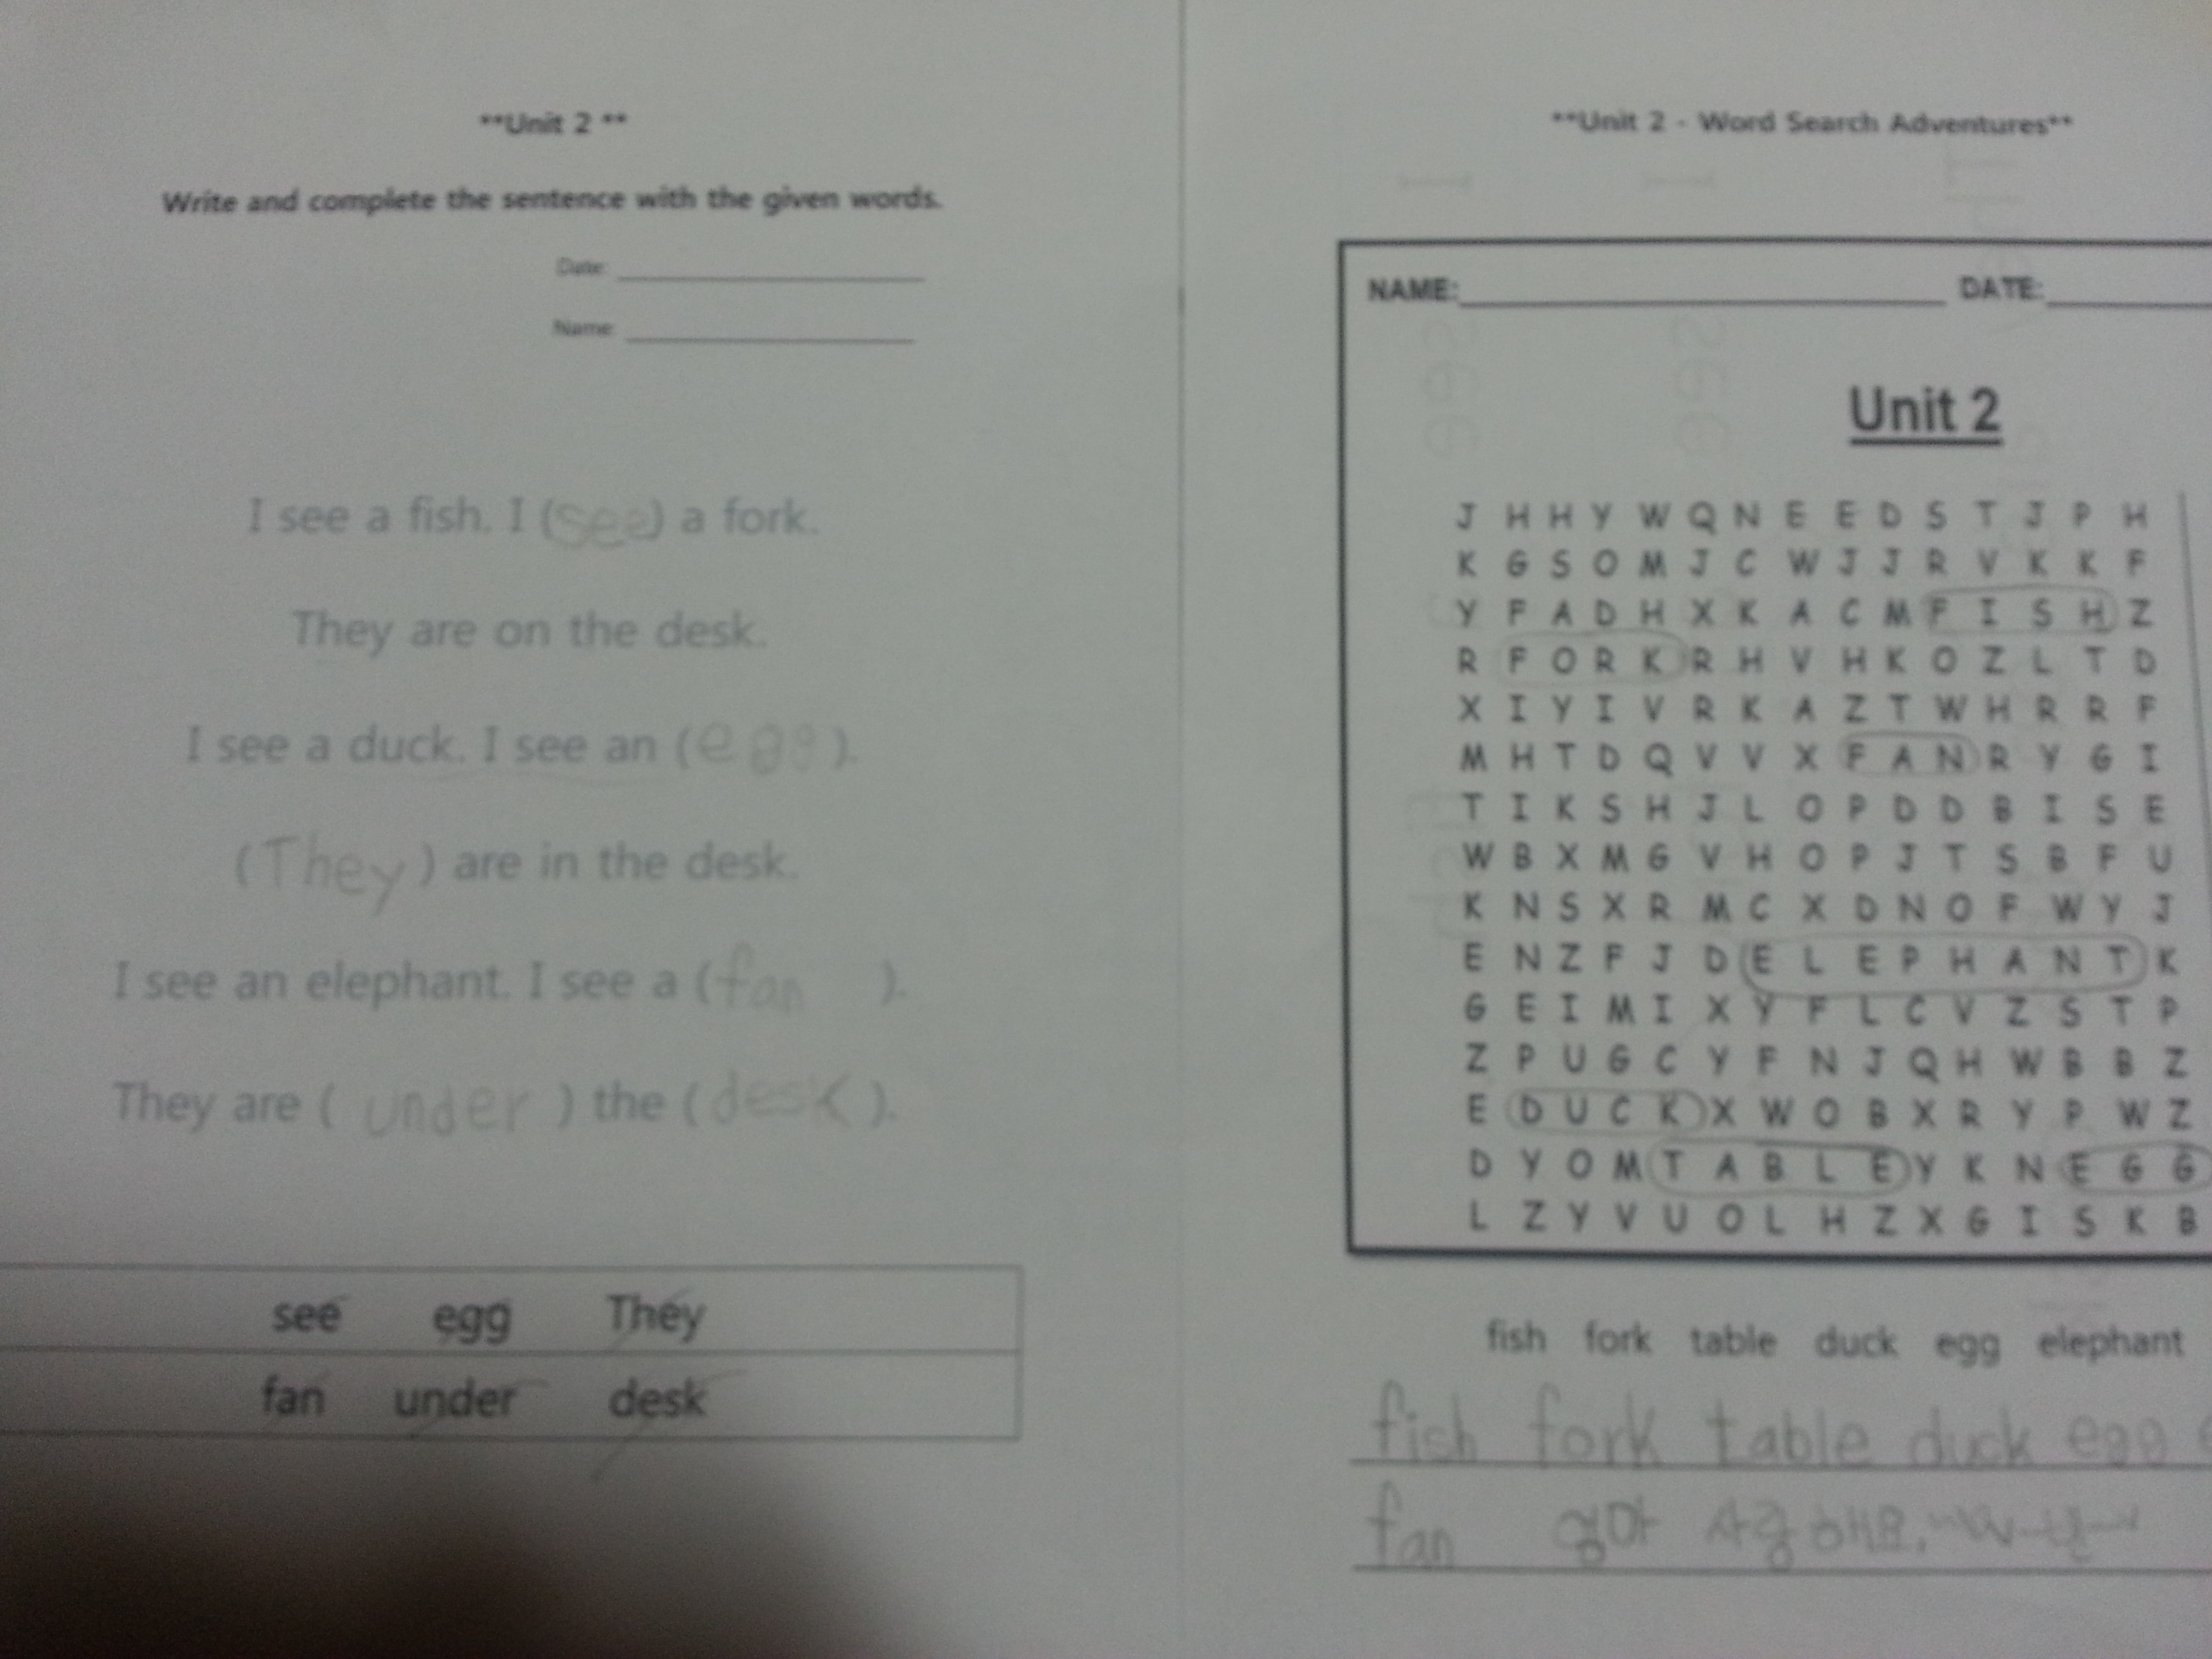 **Unit 2 **
Write and complete the sentence with the given words.
Date:
Name:
I see a fish. I (see) a fork.
They are on the desk.
I see a duck. I see an (egg).
(They) are in the desk.
I see an elephant. I see a (fan).
They are (under) the (desk).
see egg They
fan under desk
**Unit 2 - Word Search Adventures**
NAME: DATE:
Unit 2
J H H Y W Q N E E D S T J P H
K G S O M J C W J J R V K K F
Y F A D H X K A C M F I S H Z
R F O R K R H V H K O Z L T D
X I Y I V R K A Z T W H R R F
M H T D Q V V X F A N R Y G I
T I K S H J L O P D D B I S E
W B X M G V H O P J T S B F U
K N S X R M C X D N O F W Y J
E N Z F J D E L E P H A N T K
G E I M I X Y F L C V Z S T P
Z P U G C Y F N J Q H W B B Z
E D U C K X W O B X R Y P W Z
D Y O M T A B L E Y K N E G G
L Z Y V U O L H Z X G I S K B
fish fork table duck egg elephant
fish fork table duck egg
fan 엄마 사랑해요.